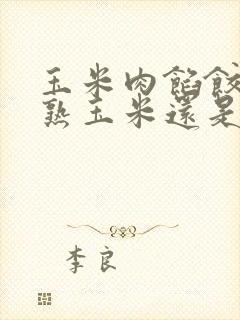 玉米肉餡餃
熟玉米還是
李良